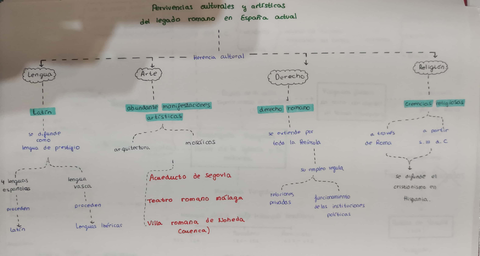 Pervivencias culturales y artísticas
del legado romano en España actual
herencia cultural
Lengua
Arte
Derecho
Religión
Latín
abundante manifestaciones
artísticas
derecho romano
creencias religiosas
se difunde
como
lengua de prestigio
arquitectura
mosaicos
se extiende por
toda la Península
a través
de Roma
a partir
s. III d. C
y lenguas
españolas
lengua
vasca
proceden
proceden
Latín
lenguas ibéricas
Acueducto de segovia
Teatro romano málaga
Villa romana de Noheda
Cuenca)
su imperio regula
relaciones
privadas
funcionamiento
de las instituciones
políticas
se difunde el
cristianismo en
Hispania.